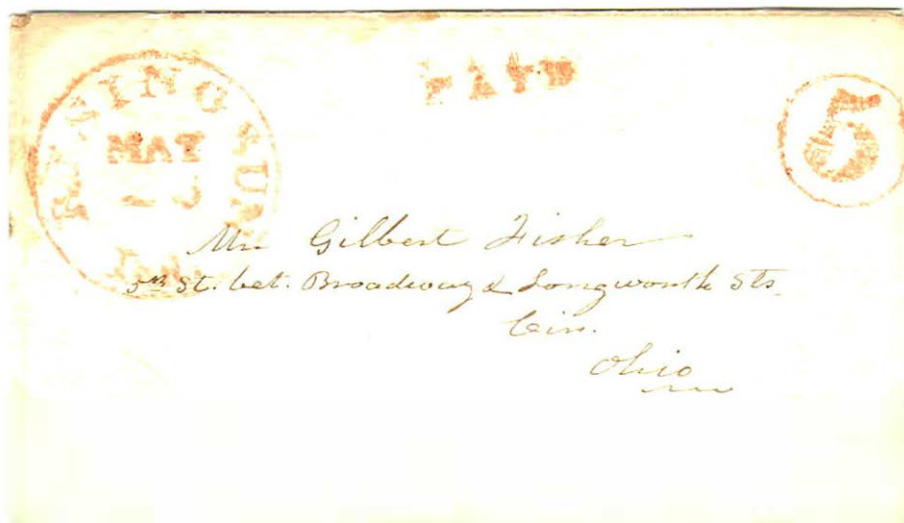 RISING SUN
MAY
PAID
5
Mr Gilbert Fisher
5th St. bet. Broadway & Longworth Sts.
Cin.
Ohio